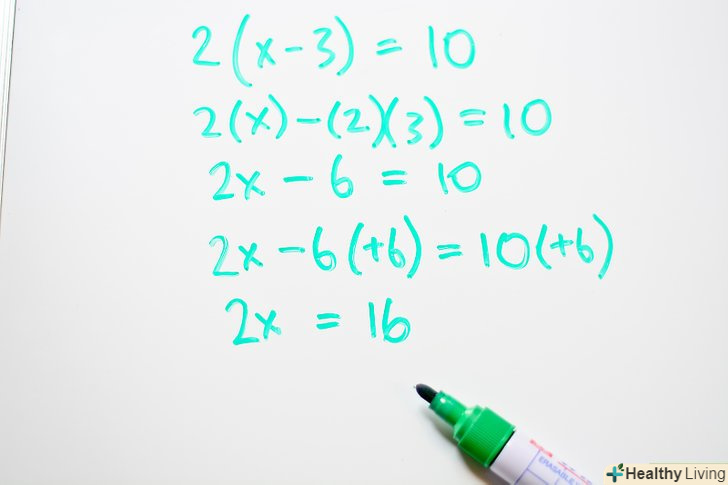 2(x-3) = 10
2(x)-(2)(3) = 10
2x - 6 = 10
2x - 6(+6) = 10(+6)
2x = 16
ERASABLE
Healthy Living